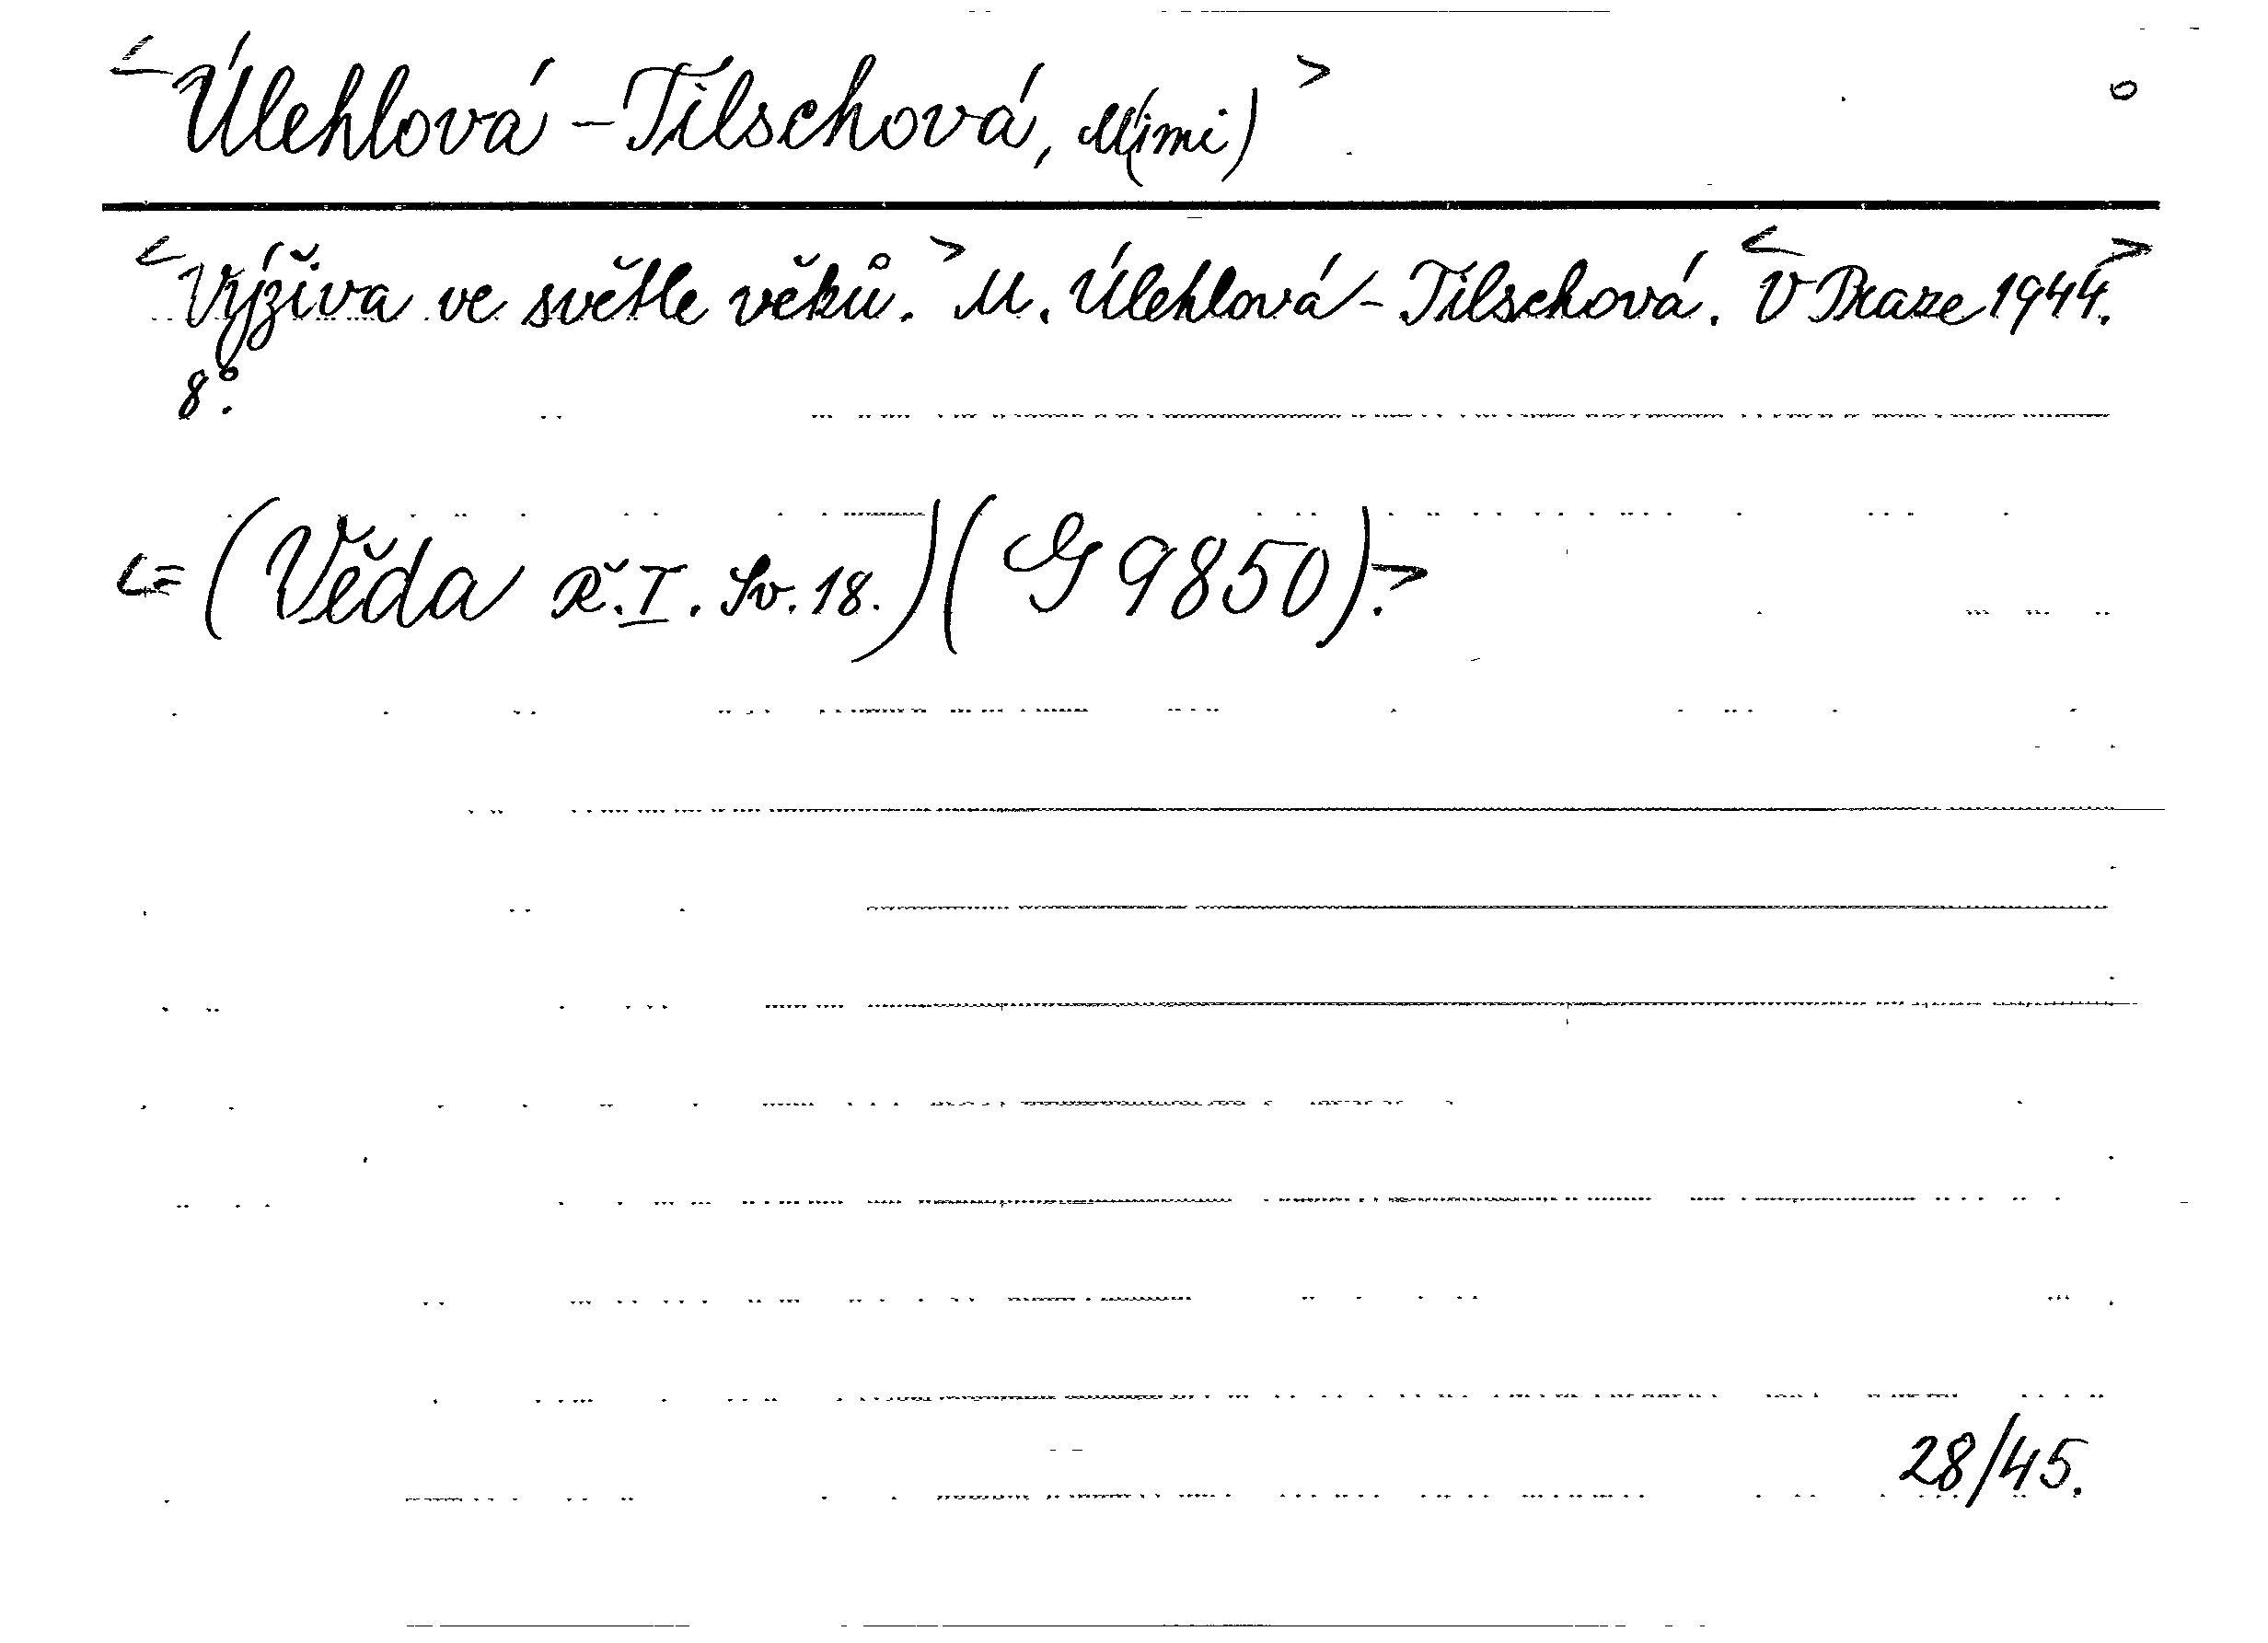 <Úlehlová-Tilschová, M(imi)>
<Výživa ve světle věků.> M. Úlehlová-Tilschová. <V Praze 1944.>
8°.
<= (Věda Ř. I. Sv. 18.) (G 9850).>
28/45.